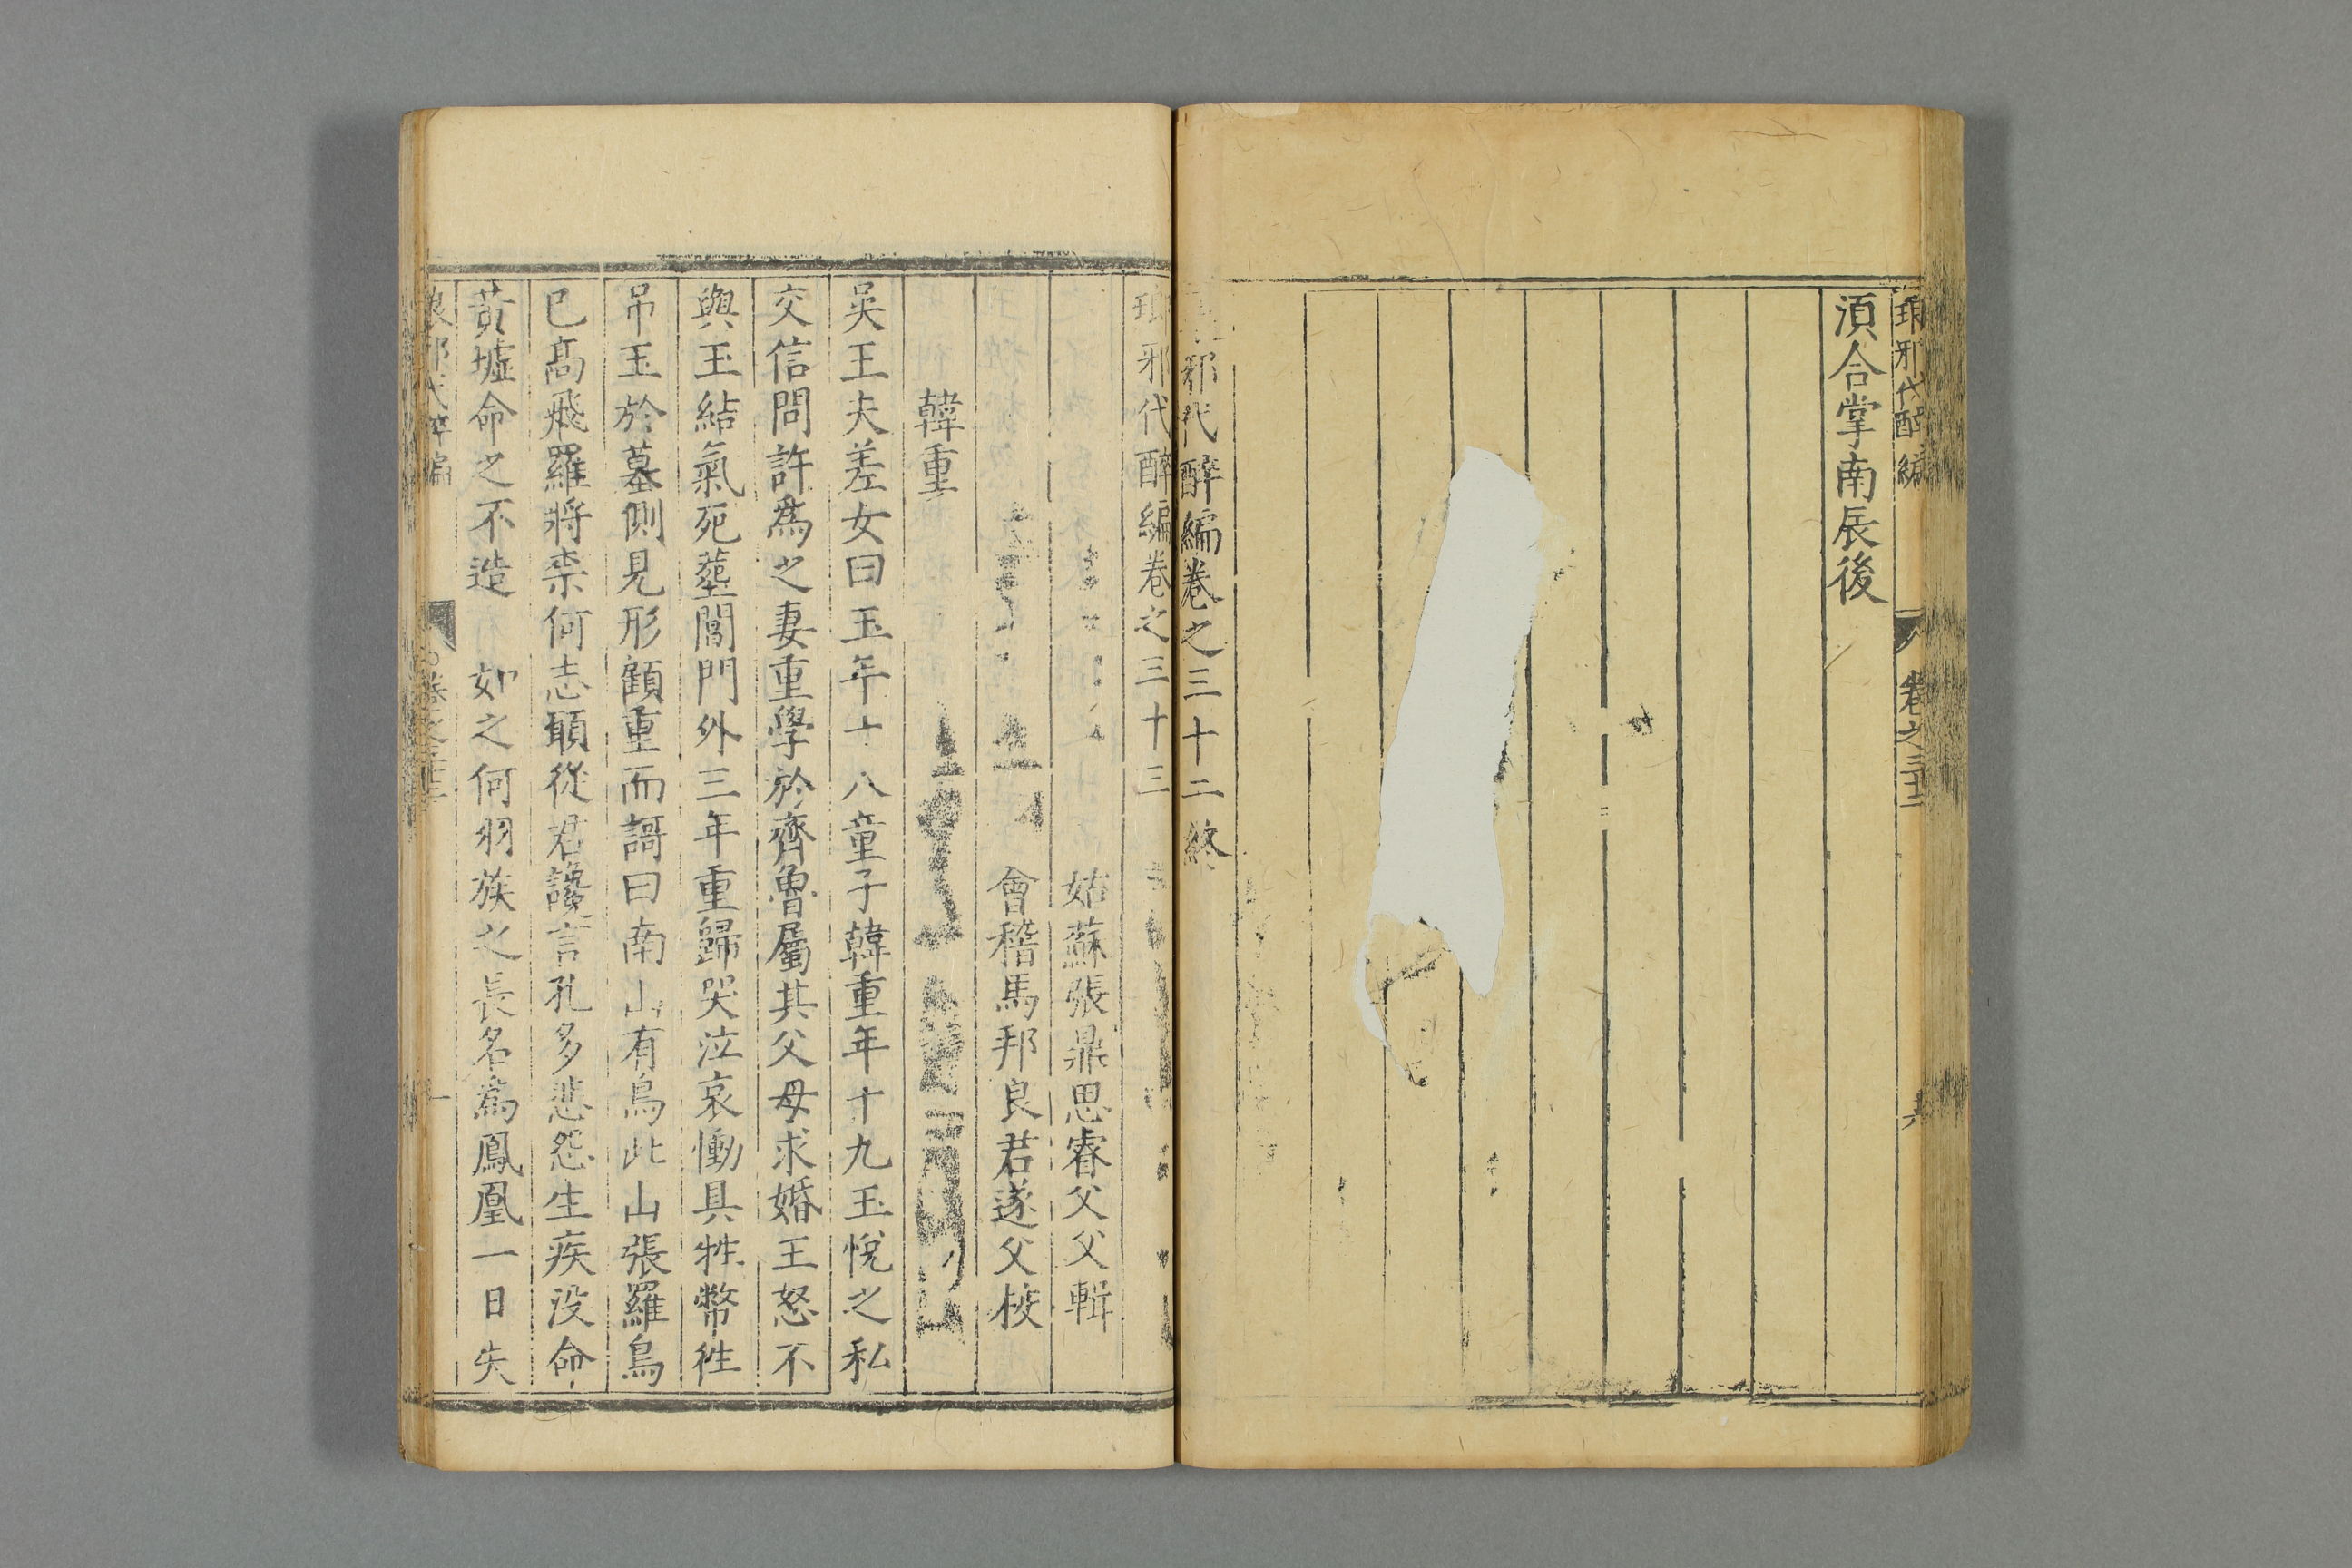 琅邪代醉編 卷之三十二
湏合掌南辰後
邪代醉編卷之三十二終
琅邪代醉編卷之三十三
姑蘇張鼎思睿父父輯
會稽馬邦良君遂父校
韓重
吳王夫差女曰玉年十八童子韓重年十九玉悅之私
交信問許爲之妻重學於齊魯屬其父母求婚王怒不
與玉結氣死塟閶門外三年重歸哭泣哀慟具牲幣徃
吊玉於墓側見形顧重而謌曰南山有鳥北山張羅鳥
已髙飛羅將柰何志願從君讒言孔多悲怨生疾没命
黃墟命之不造 如之何羽族之長名爲鳳凰一日失
卷之三十三 一